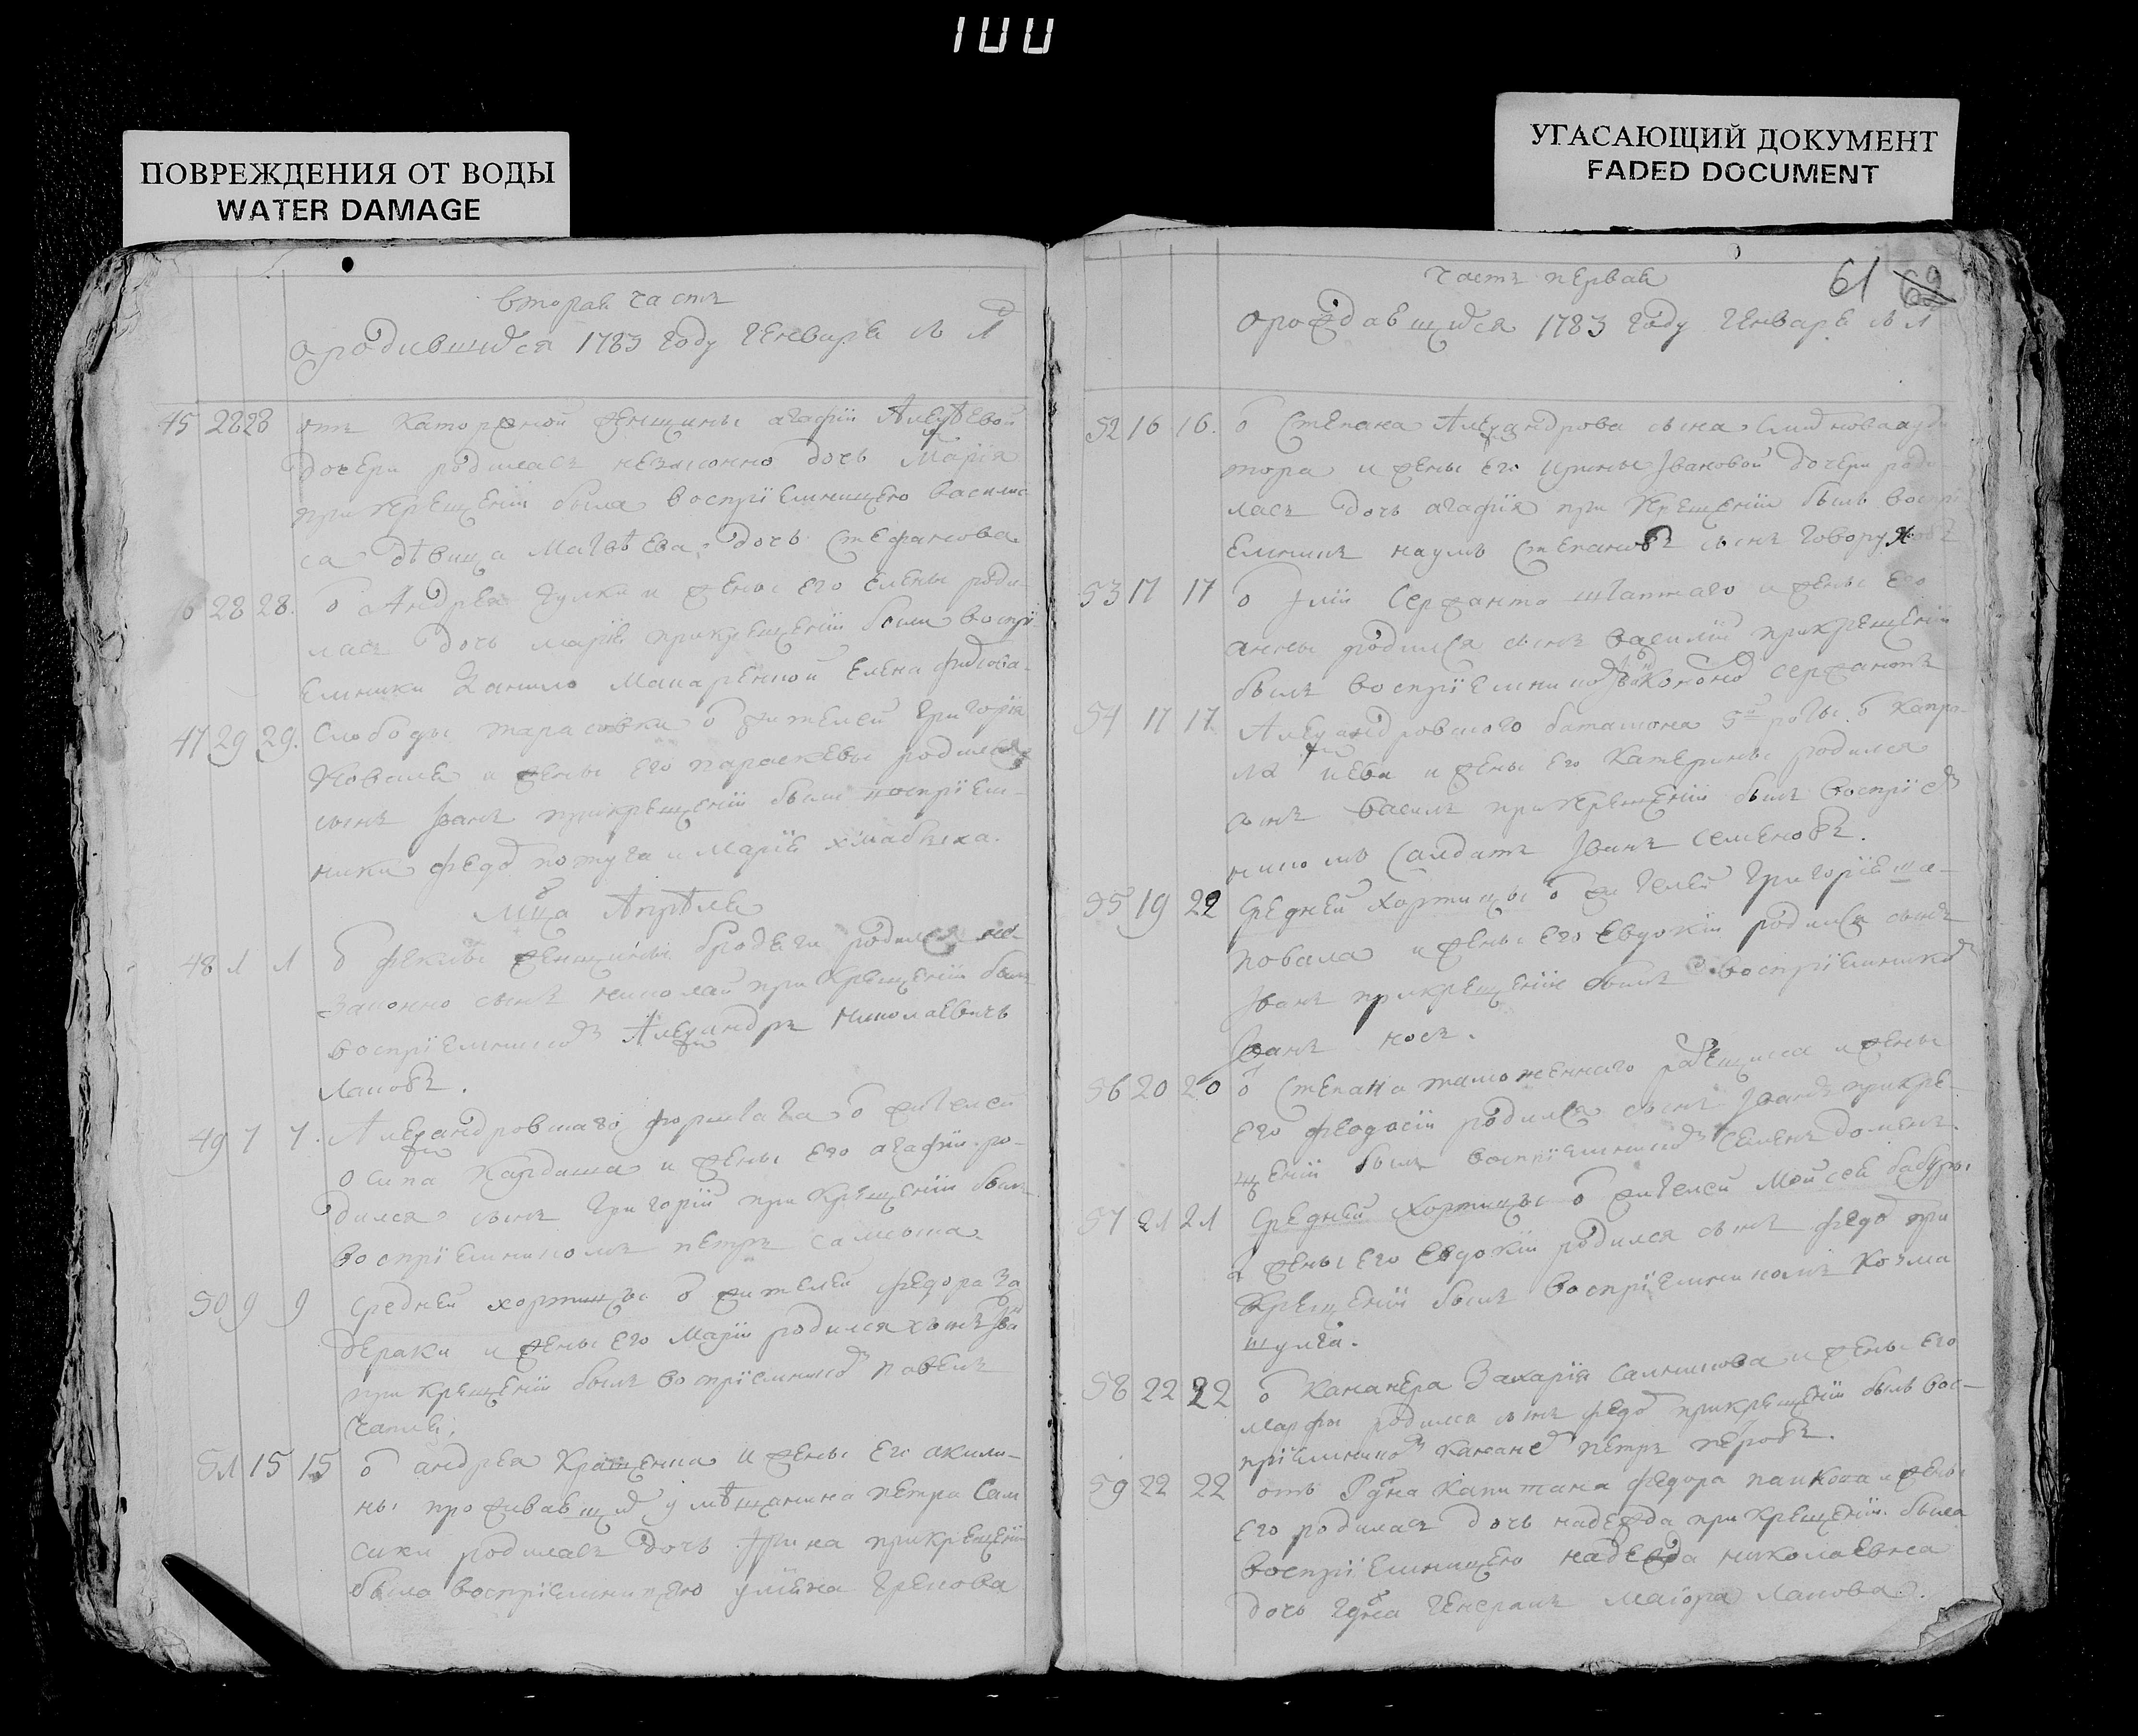 100
ПОВРЕЖДЕНИЯ ОТ ВОДЫ
WATER DAMAGE
УГАСАЮЩИЙ ДОКУМЕНТ
FADED DOCUMENT
вторая часть
о родившихся 1783 году генваря съ 1
45 28 28 отъ каторжной женщины агафіи Алеѯѣевой
дочери родилась незаконно дочь Марія
при крещеніи была воспріемницею василис
са дѣвица Матвѣева дочь Стефанова
28 28. о Андрея и жены его Елены роди
лась дочь марія при крещеніи были воспрі
емники Данило Макаренкой Елена
47 29 29. Слободы тарасовки о жителей григорія
Коваля и жены его параскевы родился
сынъ Іванъ при крещеніи были воспріем
ники федо и Марія
Мца Апрѣля
48 1 1 о феклы женщины бродяги родился не
законно сынъ николай при крещеніи былъ
воспріемнико Алеѯандръ Николаевичъ
Лановъ.
49 7 7. Алеѯандровскаго форштата о жителей
осипа Кардаша и жены его агафіи ро
дился сынъ григорій при крещеніи былъ
воспріемникомъ петръ
50 9 9 Средней хортицы о жителей федора За
дераки и жены его Маріи родился сынъ Іва
при крещеніи былъ воспріемнико павелъ
Чаплѧ.
51 15 15 о андрея и жены его акили
ны проживавщи у мѣщанина петра Сам
сики родилась дочь Ірина при крещеніи
была воспріемницею уліяна Грекова
часть первая
61 62
о рождавшихся 1783 году генваря съ 1
52 16 16. о Степана Алеѯандрова сына ауди
тора и жены его ирины Івановой дочери роди
лась дочь агафія при крещеніи былъ воспрі
емникъ наумъ Степановъ сынъ
53 17 17 о Іліи Сержанта штатнаго и жены его
анны родился сынъ василій при крещеніи
былъ воспріемнико сержантъ
54 17 17. Алеѯандровского баталиона 5й роты о капра
ла и жены его Катерины родился
сынъ василь при крещеніи былъ воспріе
никомъ Салдатъ Іванъ Семеновъ.
55 19 22 Средней хортицы о жителей григорія ша
повала и жены его евдокіи родился сынъ
Іванъ при крещеніи былъ воспріемнико
Іванъ носъ.
56 20 20 о Степана таможеннаго и жены
его феодосіи родился сынъ Іванъ при кре
щеніи былъ воспріемнико Семенъ
57 21 21 Средней хортицы о жителей Мойсей бабуры
и жены его Евдокіи родился сынъ федо при
крещеніи былъ воспріемникомъ Козма
шулга.
58 22 22 о Кананера Захарія Салникова и жены его
марфы родился сынъ федо при крещеніи былъ вос
пріемнико Канане петръ
59 22 22 отъ Гдна капитана федора и жены
его родилась дочь надежда при крещеніи была
воспріемницею надежда николаевна
дочь гдна генералъ маіора Ланова.